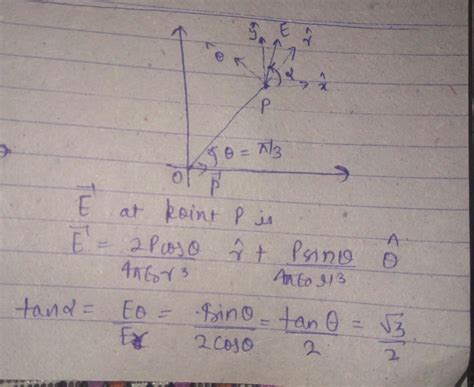 ŷ E r̂
θ α x̂
P
θ = π/3
O P⃗
E⃗ at point P is
E⃗ = 2Pcosθ/4πε₀r³ r̂ + Psinθ/4πε₀r³ θ̂
tanα = Eθ/Er = sinθ/2cosθ = tanθ/2 = √3/2